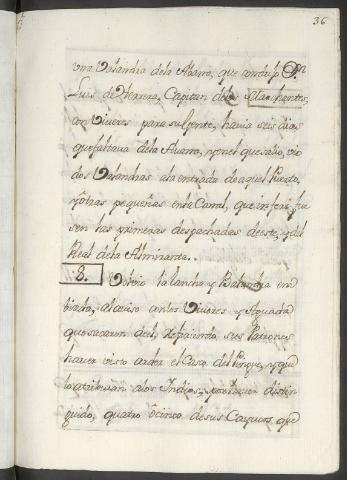 36
una Balandra de la Abana, que condujo Dn
Luis de Herrera, Capitan de los Marchantes,
con Viveres para su Gente, havia seis dias
que faltava de la Avana, y en el que salio, vio
dos Balandras a la entrada de aquel Puerto,
y otras pequeñas en la Canal, que infere fue
sen las primeras despachadas de este, y del
Real de la Almiranta.
8. Volvio la lancha y Balandra em
biada, al aviso con los Viveres y Aguada
que sacaron de el, diciendo sus Patrones
haver visto arder el Casco del Pingue, y que
lo atribuian a los Indios, por haver distin
guido, quatro ò cinco de sus Cayucos, que